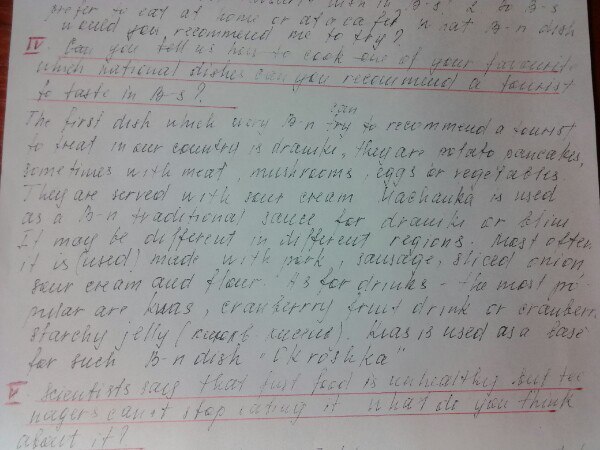 prefer to eat at home or at a cafe? What B-n dish
would you recommend me to try?
IV Can you tell us how to cook one of your favourite
which national dishes can you recommend a tourist
to taste in B-s?
The first dish which every B-n can try to recommend a tourist
to treat in our country is draniki, they are potato pancakes,
sometimes with meat, mushrooms, eggs or vegetables
They are served with sour cream Machanka is used
as a B-n traditional sauce for draniki or blini
It may be different in different regions. Most often
it is (used) made with pork, sausage, sliced onion,
sour cream and flour. As for drinks - the most po-
pular are kvas, cranberry fruit drink or cranberry
starchy jelly (). Kvas is used as a base
for such B-n dish "Okroshka"
V Scientists say that fast food is unhealthy but tee
nagers cannot stop eating it what do you think
about it?